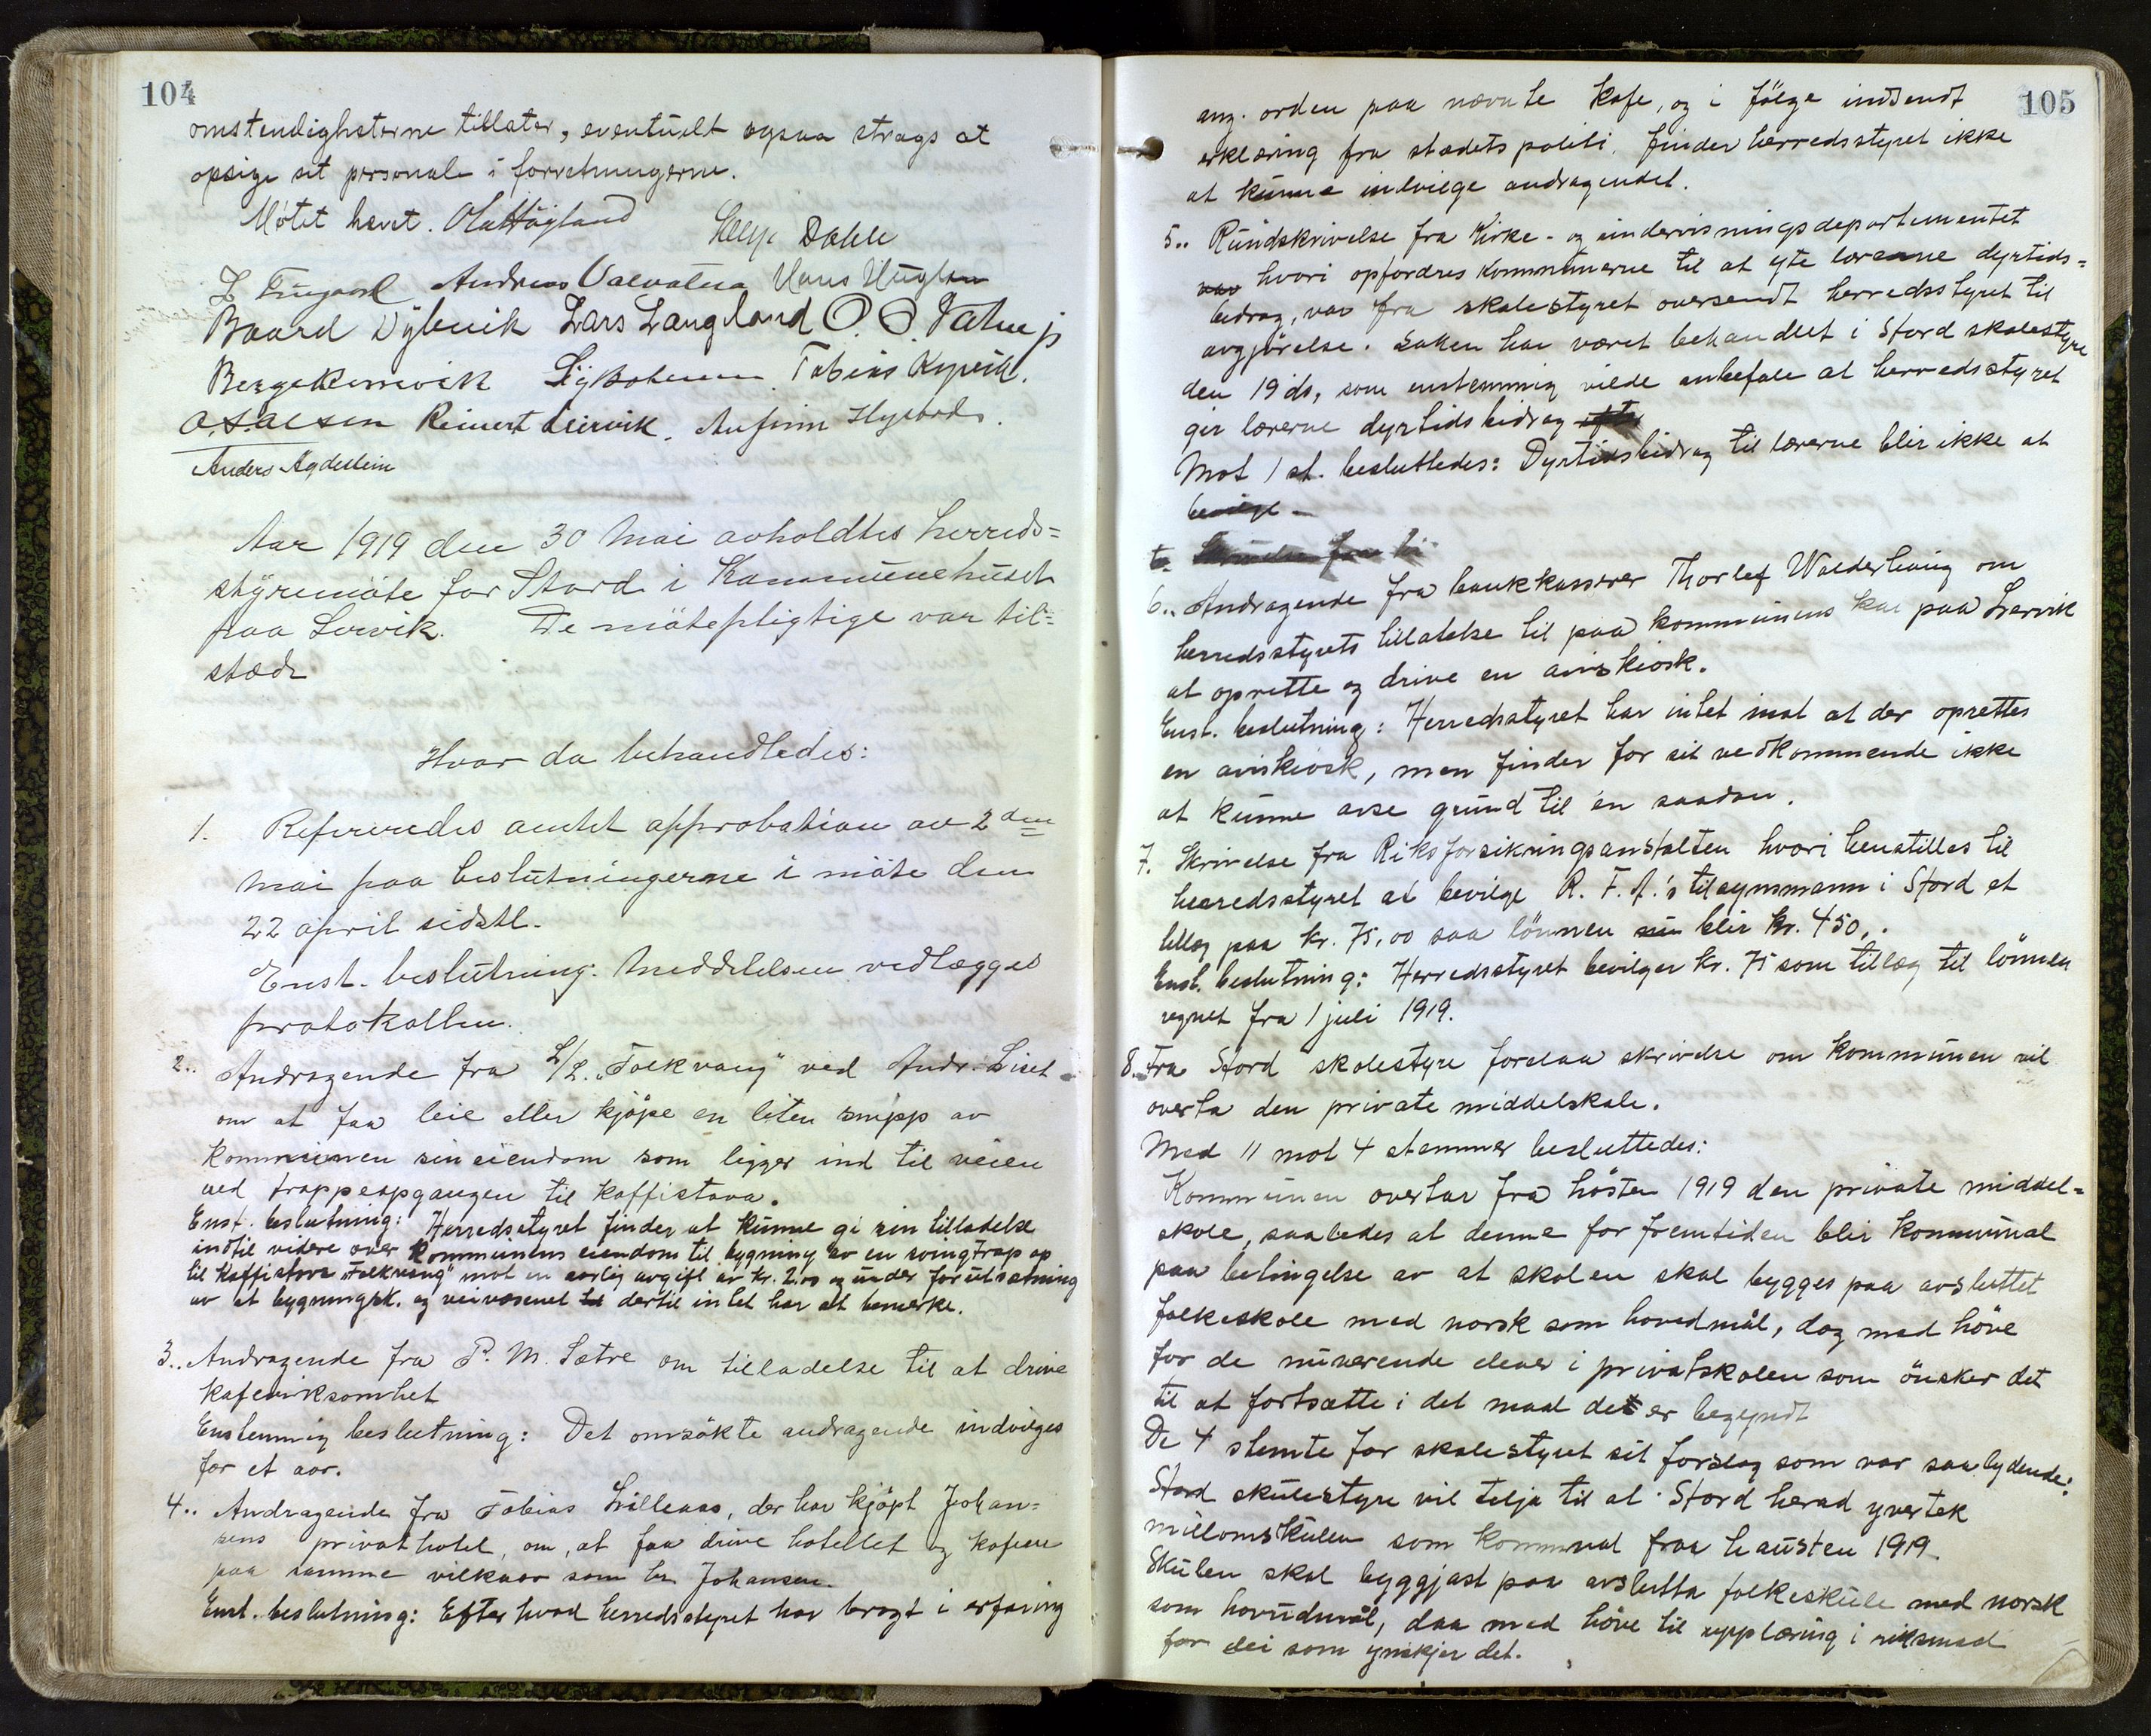 104
omstendigheterne tillater, eventuelt ogsaa strags at
opsige sit personale i forretningerne.
Møtet hævet. Ola Høyland Helge Dahle
Andreas Valvatna Hans Huglen
Baard Dybevik Lars Langeland O. O. Tatne jr
Tobias Kyvik.
O. S. Alsen Reinert Leirvik. Anfinn
Anders Agdestein
Aar 1919 den 30 Mai avholdtes herreds=
styremöte for Stord i Kommunehuset
paa Lervik. De mötepligtige var til=
stæde
Hvor da behandledes:
1. Refereredes amtets approbation av 2den
mai paa beslutningerne i möte den
22 april sidstl.
Enst. beslutning: Meddelelsen vedlægges
protokollen.
2.. Andragende fra L/L. „Folkvang" ved Andr. Liset
om at faa leie eller kjøpe en liten snipp av
kommunen sin eiendom som ligger ind til veien
ved trappeopgangen til kaffistova.
Enst. beslutning: Herredsstyret finder at kunne gi sin tilladelse
indtil videre over kommunens eiendom til bygning av en svingtrap op
til Kaffistova „Folkvang" mot en aarlig avgift av kr. 2.00 og under forutsætning
av at bygningsk. og veivæsenet dertil intet har at bemerke.
3.. Andragende fra P. M. Sætre om tilladelse til at drive
kafevirksomhet
Enstemmig beslutning: Det omsökte andragende indvilges
for et aar.
4.. Andragende fra Tobias Lilleaas, der har kjöpt Johan=
sens privathotel, om, at faa drive hotellet og kafeen
paa samme vilkaar som hr. Johansen.
Enst. beslutning: Efter hvad herredsstyret har bragt i erfaring
105
ang. orden paa nævnte kafe, og i fölge indsendt
erklæring fra stedets politi, finder herredsstyret ikke
at kunne indvilge andragendet.
5.. Rundskrivelse fra Kirke- og undervisningsdepartementet
hvori opfordres kommunerne til at yte lærerne dyrtids=
bidrag, var fra skolestyret oversendt herredsstyret til
avgjörelse. Saken har været behandlet i Stord skolestyre
den 19 ds, som enstemmig vilde anbefale at herredsstyret
gir lærerne dyrtidsbidrag
Mot 1 st. besluttedes: Dyrtidsbidrag til lærerne blir ikke at
bevilge -
6.. Andragende fra bankkasserer Thorlef Walderhaug om
herredsstyrets tillatelse til paa kommunens kai paa Lervik
at oprette og drive en aviskiosk.
Enst. beslutning: Herredsstyret har intet imot at der oprettes
en aviskiosk, men finder for sit vedkommende ikke
at kunne avse grund til en saadan.
7. Skrivelse fra Riksforsikringsanstalten hvori henstilles til
herredsstyret at bevilge R. F. A.'s tilsynsmann i Stord et
tillæg paa kr. 75,00 saa lönnen blir kr. 450,.
Enst. beslutning: Herredsstyret bevilger kr. 75 som tillæg til lönnen
regnet fra 1 juli 1919.
8. Fra Stord skolestyre forelaa skrivelse om kommunen vil
overta den private middelskole.
Med 11 mot 4 stemmer besluttedes:
Kommunen overtar fra hösten 1919 den private middel=
skole, saaledes at denne for fremtiden blir kommunal
paa betingelse av at skolen skal bygges paa avsluttet
folkeskole med norsk som hovedmål, dog med höve
for de nuværende elever i privatskolen som önsker det
til at fortsætte i det maal det er begyndt
De 4 stemte for skolestyret sit forslag som var saa lydende:
Stord skulestyre vil telja til at Stord herad yvertek
millomskulen som kommunal fraa hausten 1919.
Skulen skal byggjast paa avslutta folkeskule med norsk
som hovudmål, daa med höve til upplæring i riksmaal
for dei som ynskjer det.